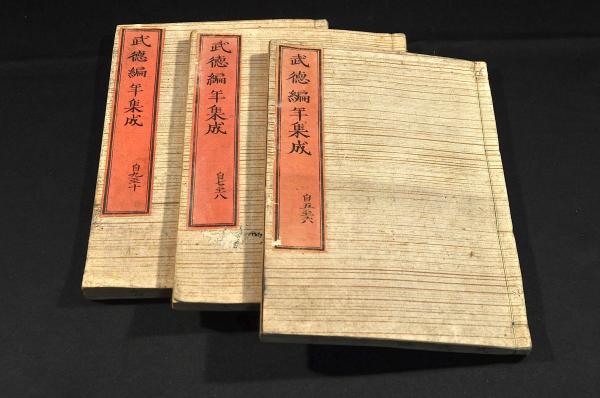 武德編年集成
自五至六
武德編年集成
自七至八
武德編年集成
自九至十